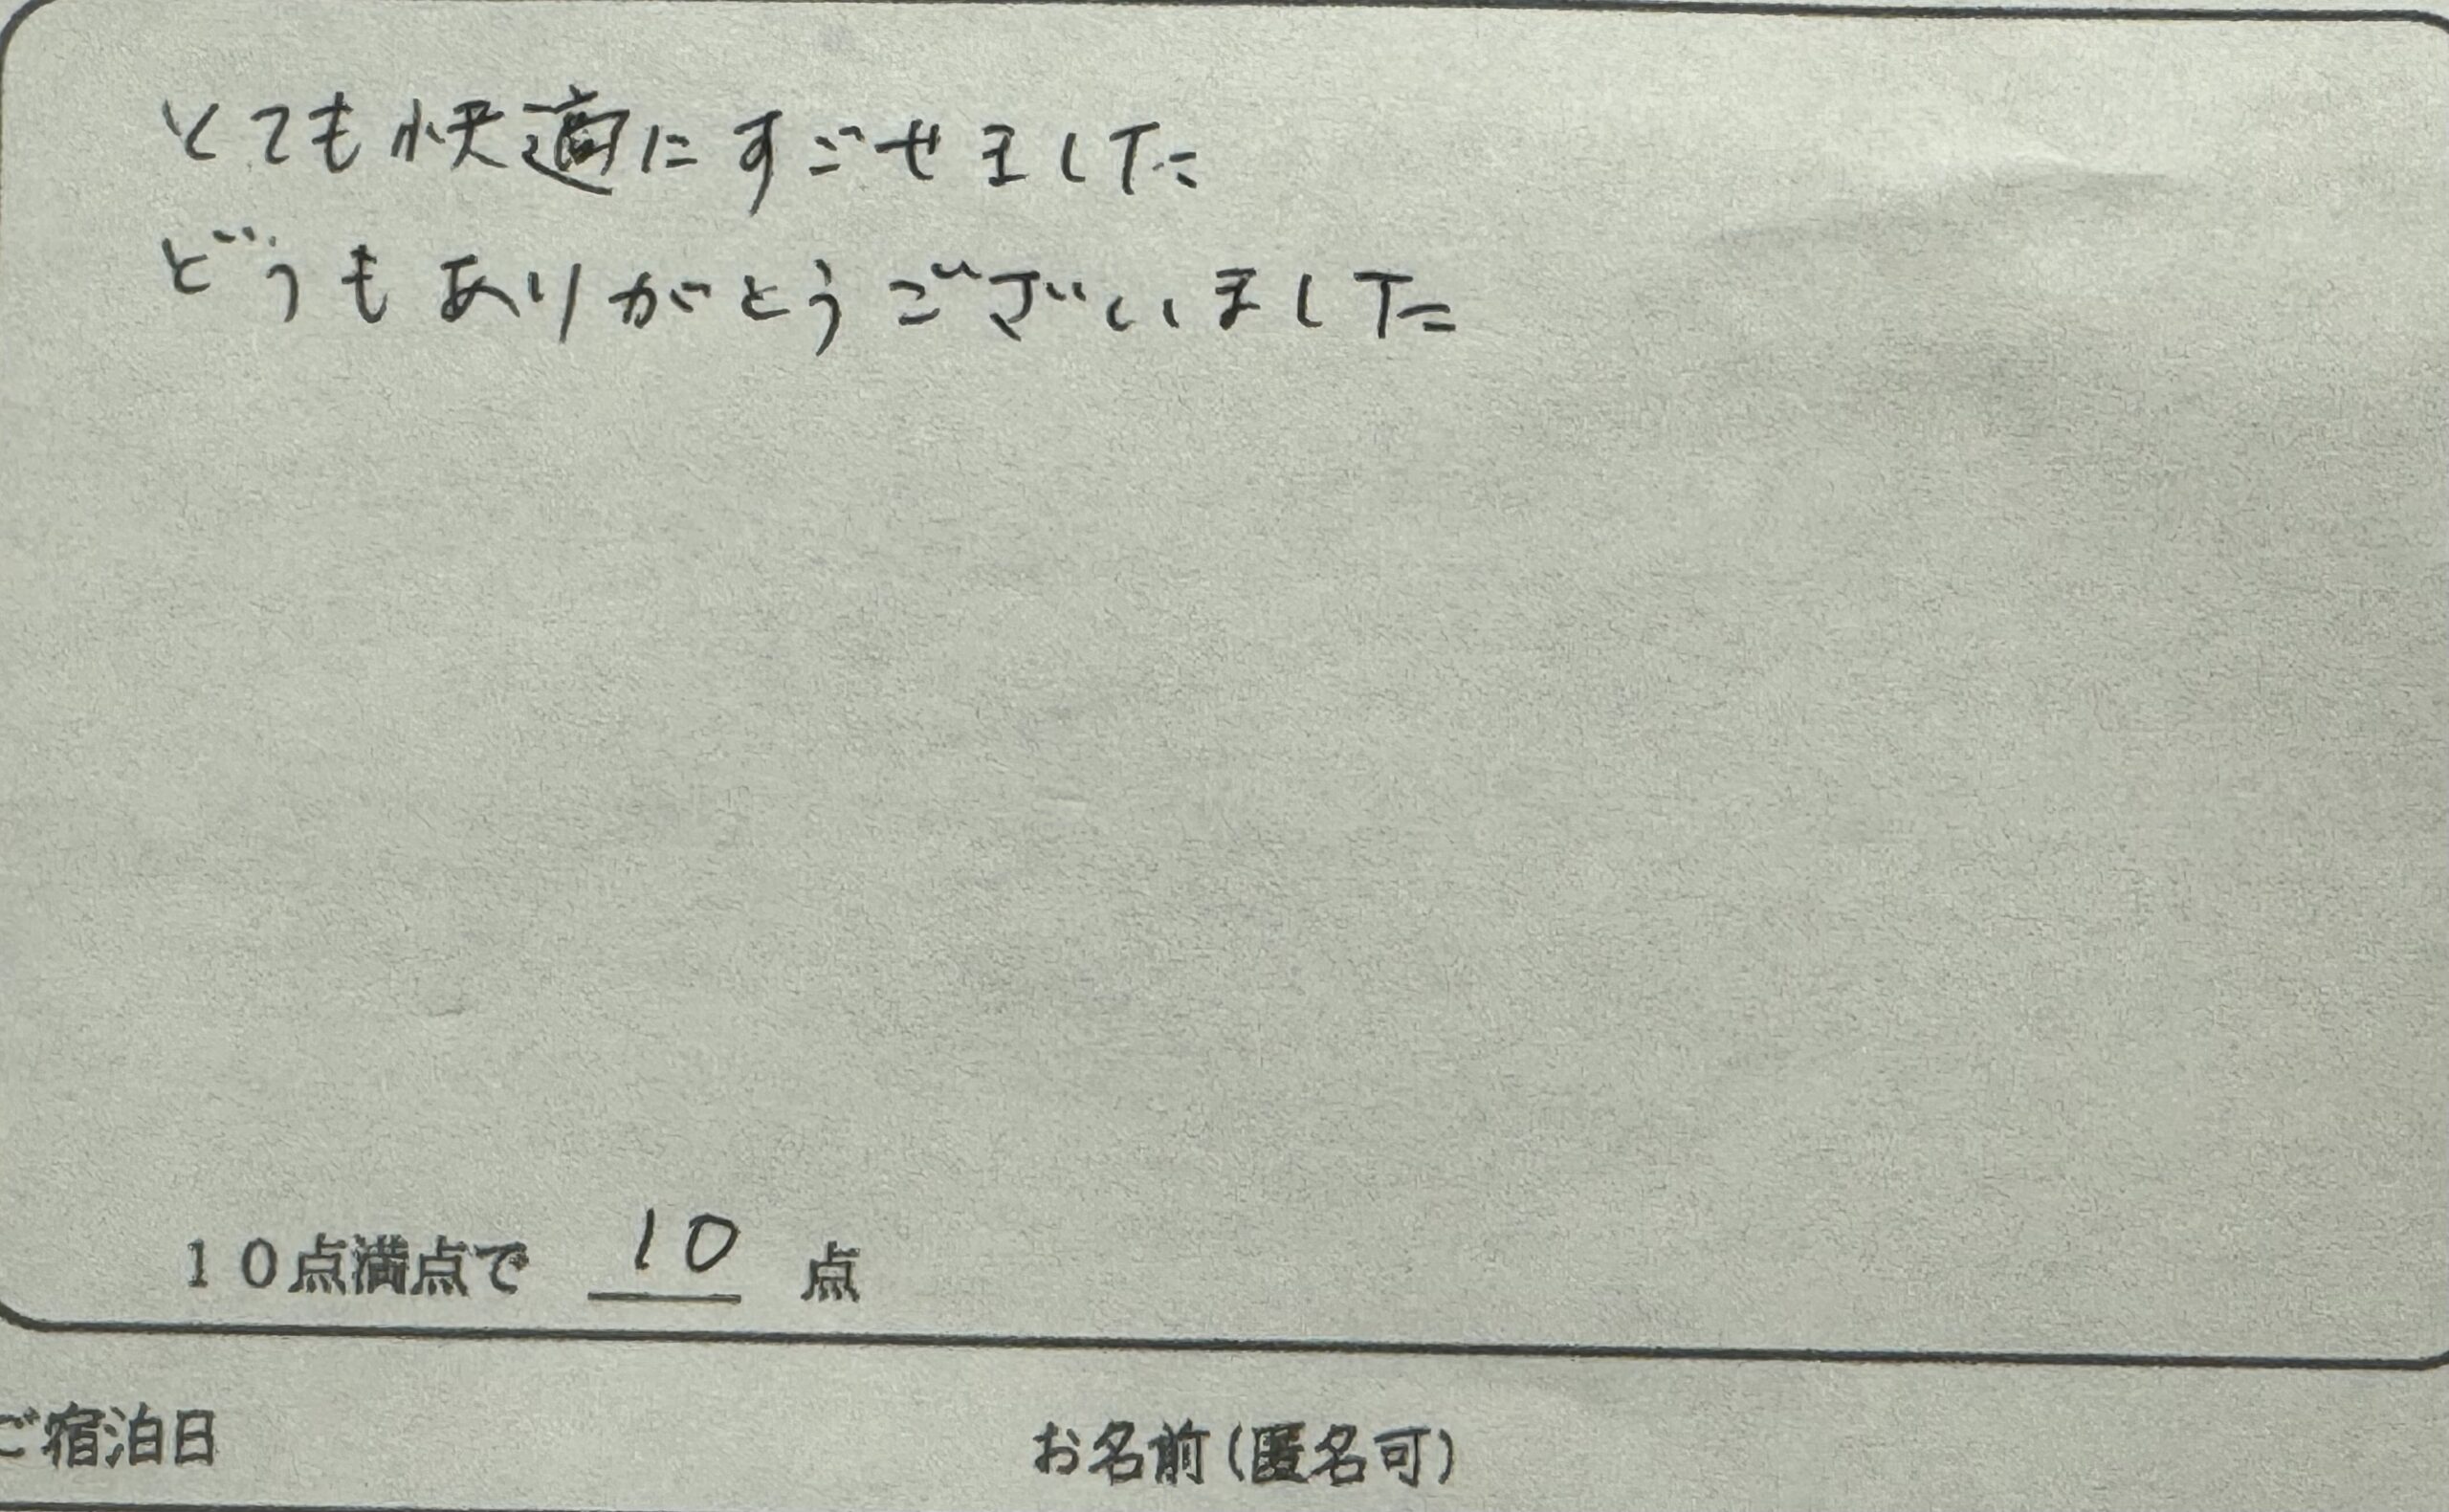 とても快適にすごせました
どうもありがとうございました
10点満点で 10 点
ご宿泊日 お名前(匿名可)